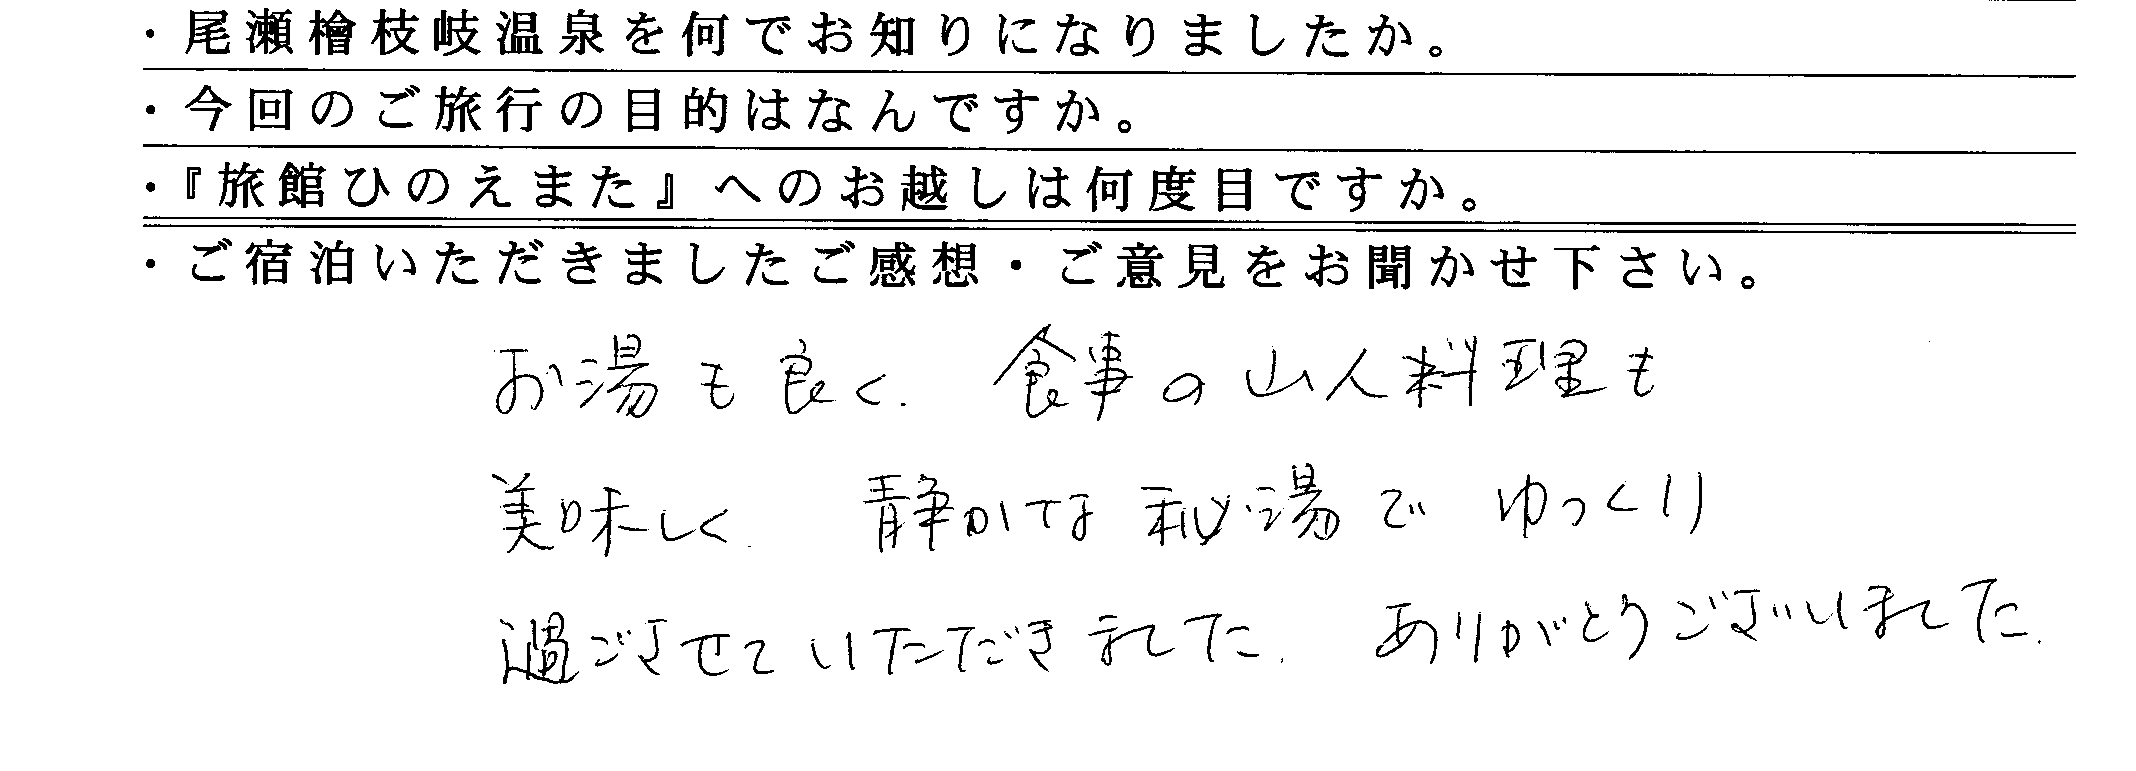 ・尾瀬檜枝岐温泉を何でお知りになりましたか。
・今回のご旅行の目的はなんですか。
・『旅館ひのえまた』へのお越しは何度目ですか。
・ご宿泊いただきましたご感想・ご意見をお聞かせ下さい。
お湯も良く. 食事の山人料理も
美味しく. 静かな秘湯で ゆっくり
過ごさせていただきました. ありがとうございました.